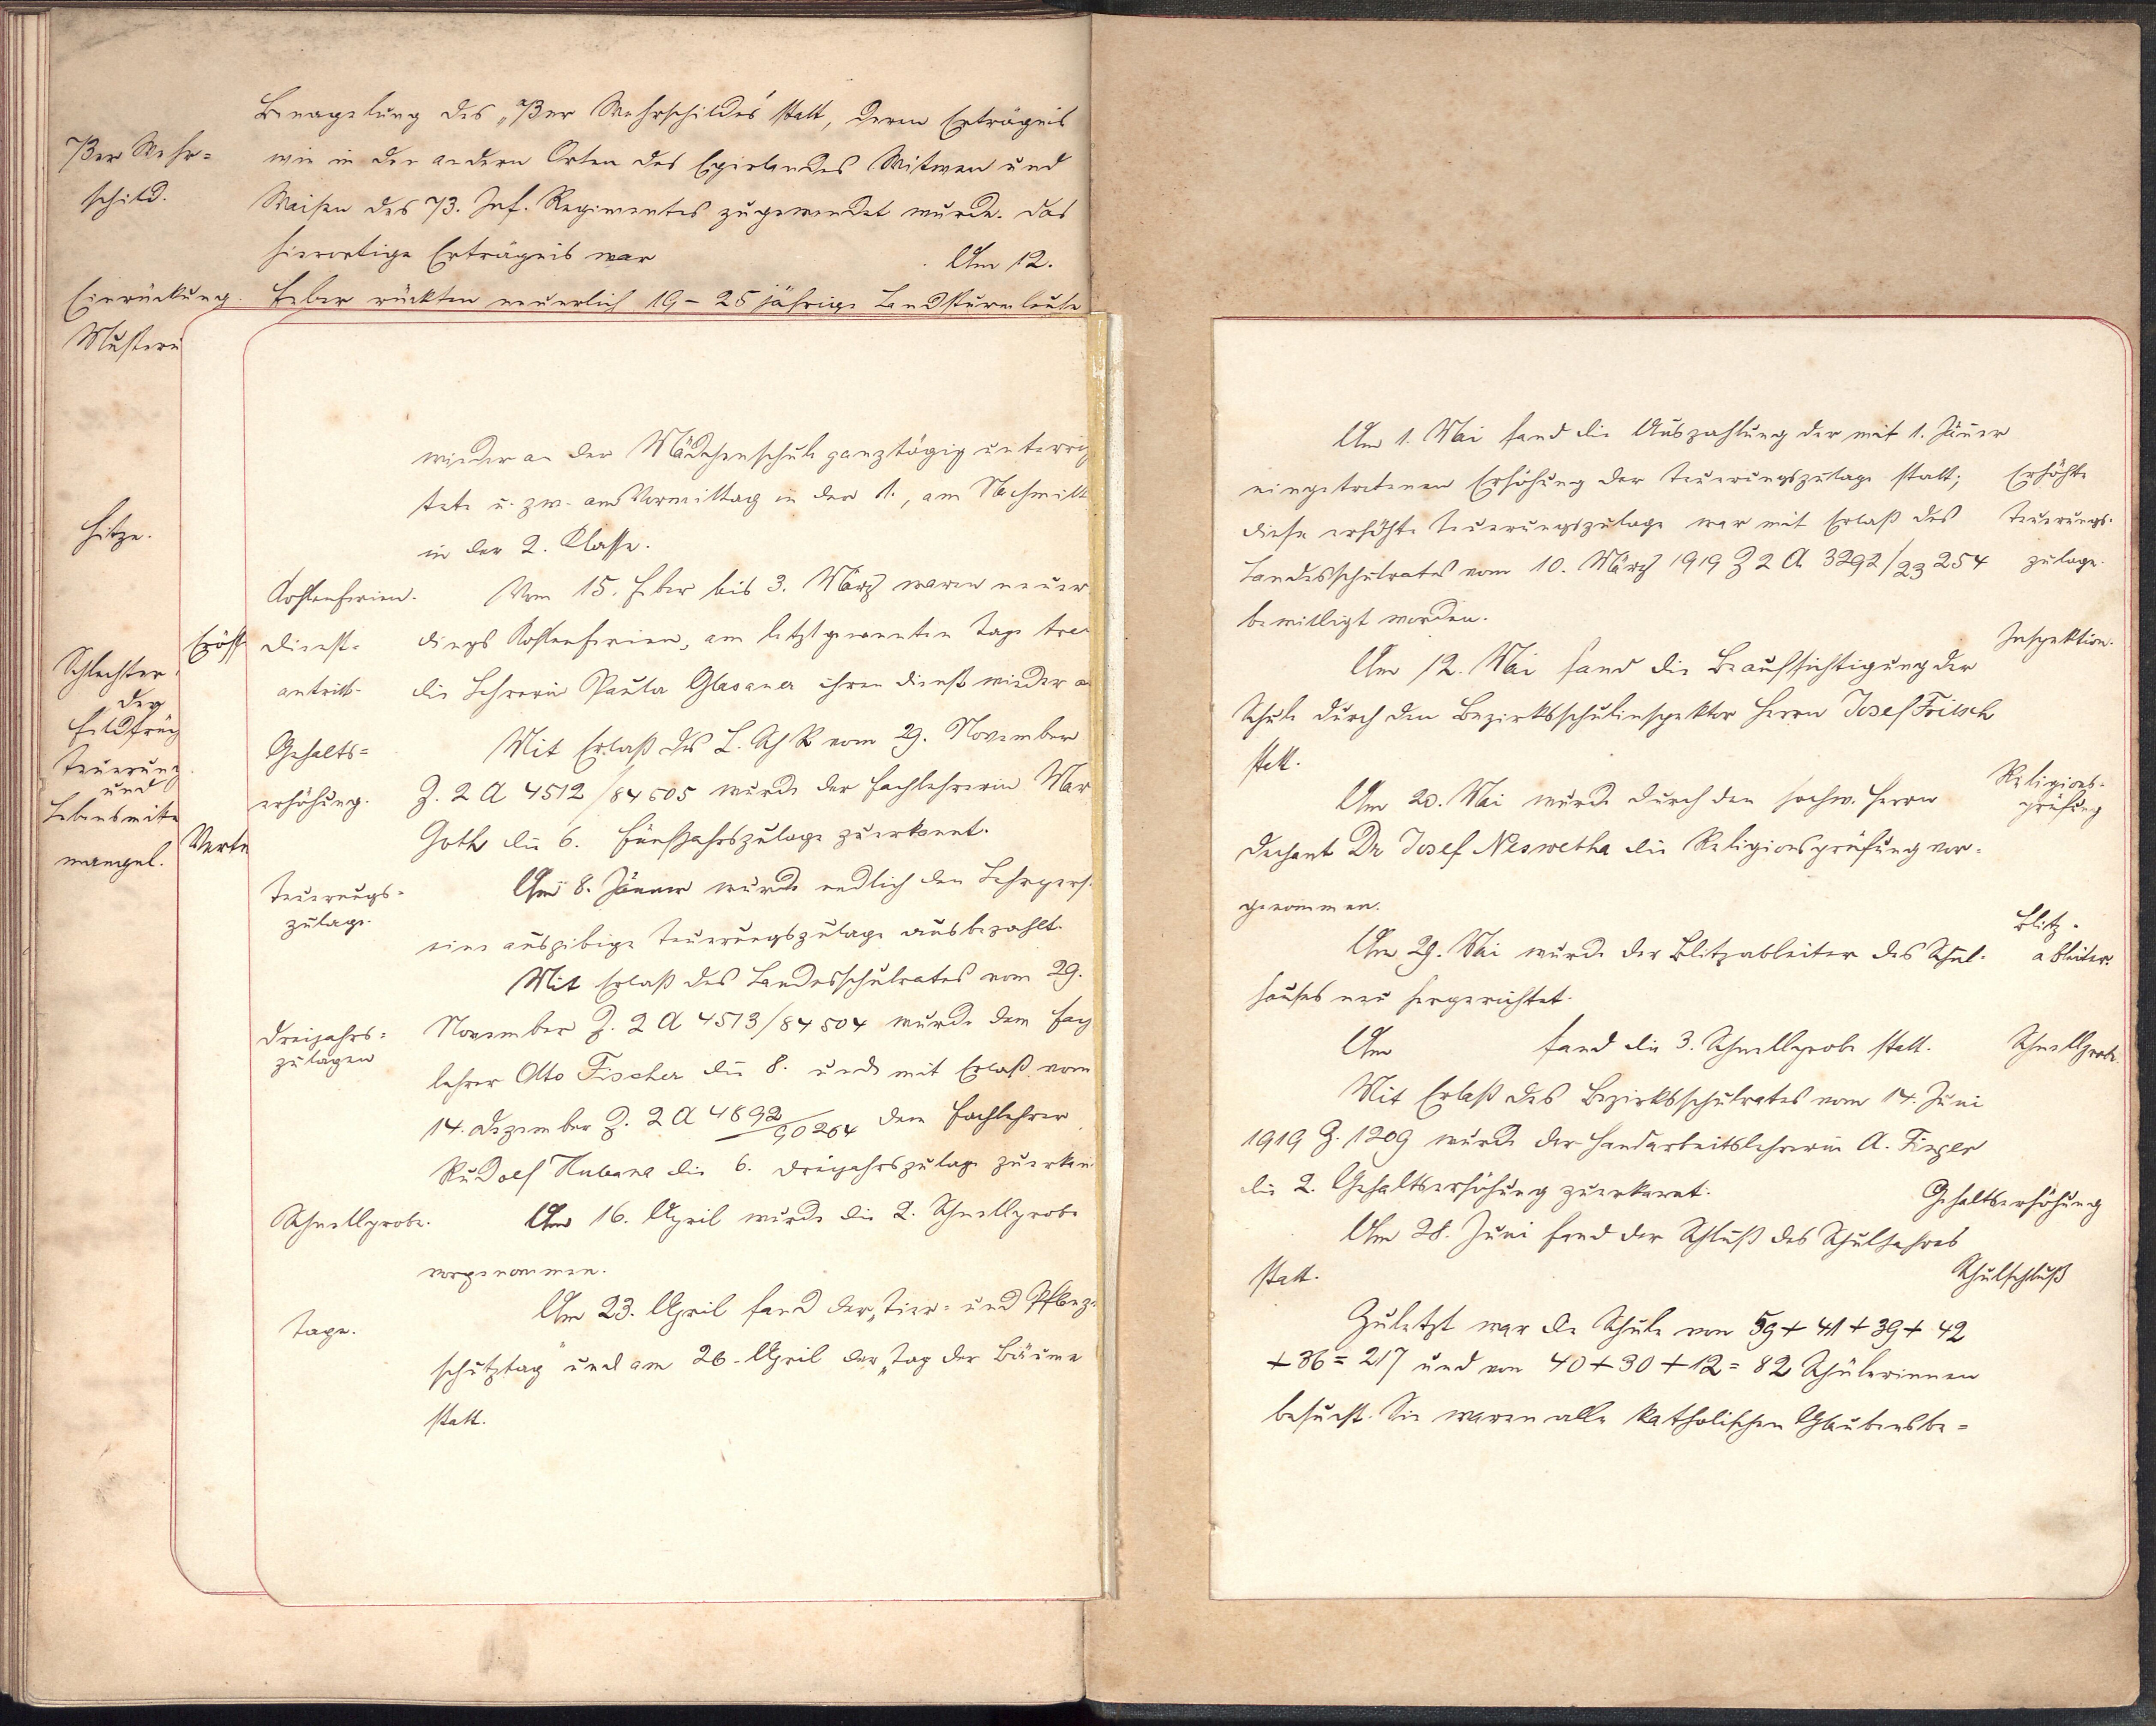 Benagelung des „73er Wehrschildes" statt, deren Erträgnis
73er Wehr=
wie in den andern Orten des Egerlandes Witwen und
schild.
Waisen des 73. Inf. Regimentes zugewendet wurde. Das
hierortige Erträgnis war
Am 12.
Einrückung.
Feber rückten neuerlich 19-25 jährige Landsturmleute
Musteru
Hitze.
Schlechter
der
Feldfrüch
Teuerung
und
Lebensmitte
mangel.
Eröff
Verte
wieder an der Mädchenschule ganztägig unterrich
tete u. zw. am Vormittag in der 1., am Nachmitt
in der 2. Classe.
Kohlenferien.
Vom 15. Feber bis 3. März waren neuer
Dienst=
dings Kohlenferien, am letztgenannten Tage trat
antritt.
die Lehrerin Paula Glasauer ihren Dienst wieder a
Gehalts=
Mit Erlaß des L. Sch R vom 29. November
erhöhung.
Z. 2 A 4512/84505 wurde der Fachlehrerin Mar
Goth die 6. Fünfjahrszulage zuerkannt.
Teuerungs=
zulage.
Am 8. Jänner wurde endlich den Lehrpers.
eine ausgibige Teuerungszulage ausbezahlt.
Mit Erlaß des Landesschulrates vom 29.
Dreijahrs=
zulagen
November Z. 2 A 4513/84504 wurde dem Fach
lehrer Otto Fischer die 8. und mit Erlaß vom
14. Dezember Z. 2 A 4892/90264 dem Fachlehrer
Rudolf die 6. Dreijahrszulage zuerkan
Schnellprobe.
Am 16. April wurde die 2. Schnellprobe
vorgenommen.
Tage.
Am 23. April fand der „Tier= und Pflanz=
schutztag" und am 26. April der „Tag der Bäume
statt.
Am 1. Mai fand die Auszahlung der mit 1. Jänner
eingetretenen Erhöhung der Teuerungszulage statt;
Erhöhte
diese erhöhte Teuerungszulage war mit Erlaß des
Teuerungs=
Landesschulrates vom 10. März 1919 Z 2 A 3292/23254
zulage.
bewilligt worden.
Inspektion.
Am 12. Mai fand die Beaufsichtigung der
Schule durch den Bezirksschulinspektor Herrn Josef Fritsch
statt.
Religions=
prüfung
Am 20. Mai wurde durch den hochw. Herrn
Dechant Dr Josef Neswetha die Religionsprüfung vor=
genommen.
Blitz=
ableiter.
Am 29. Mai wurde der Blitzableiter des Schul=
hauses neu hergerichtet.
Am fand die 3. Schnellprobe statt.
Schnellprobe.
Mit Erlaß des Bezirksschulrates vom 14. Juni
1919 Z. 1209 wurde der Handarbeitslehrerin A.
die 2. Gehaltserhöhung zuerkannt.
Gehaltserhöhung
Am 28. Juni fand der Schluß des Schuljahres
statt.
Schulschluß
Zuletzt war die Schule von 59 + 41 + 39 + 42
+ 36 = 217 und von 40 + 30 + 12 = 82 Schülerinnen
besucht. Sie waren alle katholischen Glaubensbe=